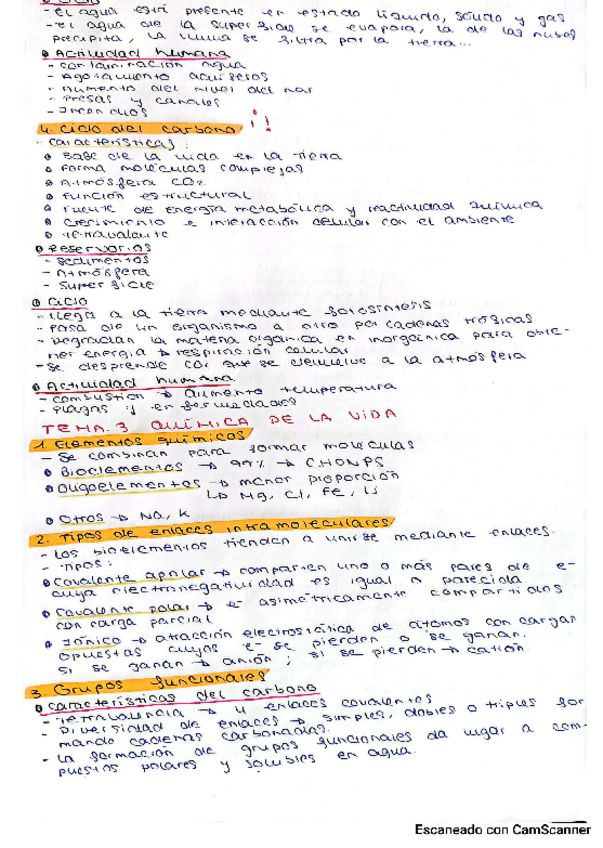 - El agua está presente en estado líquido, sólido y gas
- el agua de la superficie se evapora, la de las nubes
precipita, la lluvia se filtra por la tierra...
Actividad humana
- contaminación agua
- Agotamiento acuíferos
- Aumento del nivel del mar
- Presas y canales
- Incendios
4. Ciclo del carbono !!
- Características:
Base de la vida en la tierra
Forma moléculas complejas
Atmósfera CO2
Función estructural
Fuente de energía metabólica y reactividad química
Crecimiento e interacción celular con el ambiente
Tetravalente
Reservorios
- Sedimentos
- Atmósfera
- Superficie
Ciclo
- Llega a la tierra mediante fotosíntesis
- Pasa de un organismo a otro por cadenas tróficas
- Degradan la materia orgánica en inorgánica para obte-
ner energía → respiración celular
- Se desprende CO2 que se devuelve a la atmósfera
Actividad humana
- combustión → aumento temperatura
- Plagas y enfermedades
TEMA. 3 QUÍMICA DE LA VIDA
1. Elementos químicos
- Se combinan para formar moléculas
Bioelementos → 99% → CHONPS
Oligoelementos → menor proporción
↳ Mg, Cl, Fe, Li
Otros → Na, K
2. Tipos de enlaces intramoleculares
- Los bioelementos tienden a unirse mediante enlaces.
- Tipos:
Covalente apolar → comparten uno o más pares de e-
cuya electronegatividad es igual o parecida
Covalente polar → e- asimétricamente compartidos
con carga parcial
Iónico → atracción electrostática de átomos con cargas
opuestas cuyos e- se pierden o se ganan.
Si se ganan → anión ; si se pierden → catión.
3. Grupos funcionales
Características del carbono
- Tetravalencia → 4 enlaces covalentes
- Diversidad de enlaces → simples, dobles o triples for
mando cadenas carbonadas.
- La formación de grupos funcionales da lugar a com-
puestos polares y solubles en agua.
Escaneado con CamScanner